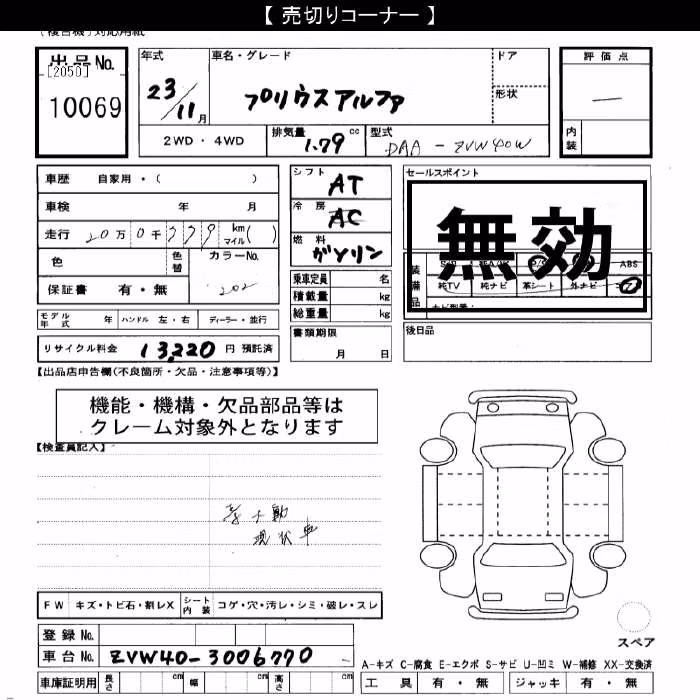 【 売切りコーナー 】
出品No.
[2050]
10069
年式
23/11月
車名・グレード
プリウスアルファ
ドア
形状
2WD・4WD
排気量 1.79 cc
型式 DAA-ZVW40W
評価点
内装
車歴 自家用・( )
車検 年 月
走行 20万0千779 km マイル( )
色 色替 カラーNo.
保証書 有・無 202
モデル年式 年 ハンドル 左・右 ディーラー・並行
リサイクル料金 13,220 円 預託済
シフト AT
冷房 AC
燃料 ガソリン
乗車定員 名
積載量 kg
総重量 kg
書類期限
月 日
セールスポイント
無効
装備品 ABS
純TV 純ナビ 革シート 外ナビ
後日品
【出品店申告欄(不良箇所・欠品・注意事項等)】
機能・機構・欠品部品等は
クレーム対象外となります
【検査員記入】
不動
現状車
FW キズ・トビ石・割レX シート内装 コゲ・穴・汚レ・シミ・破レ・スレ
登録No.
車台No. ZVW40-3006770
車庫証明用 長さ cm 幅 cm 高さ cm
スペア
A-キズ C-腐食 E-エクボ S-サビ U-凹ミ W-補修 XX-交換済
工具 有・無 ジャッキ 有・無